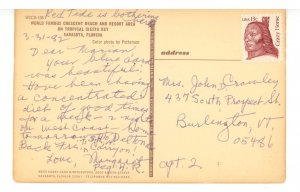 Red Tide is bothering
WORLD FAMOUS CRESCENT BEACH AND RESORT AREA
ON TROPICAL SIESTA KEY
SARASOTA, FLORIDA
Color photo by
3-31-92
Dear Marian
Your blue card
was beautiful.
Have been having
a concentrated
diet of good times
for a week - 2 nights
on west coast - home
tomorrow
Back
Love, Margaret
address
USA 15c
Crazy Horse
Mrs. John Crowley
437 South Prospect St.
Burlington, VT.
05486
apt. 2